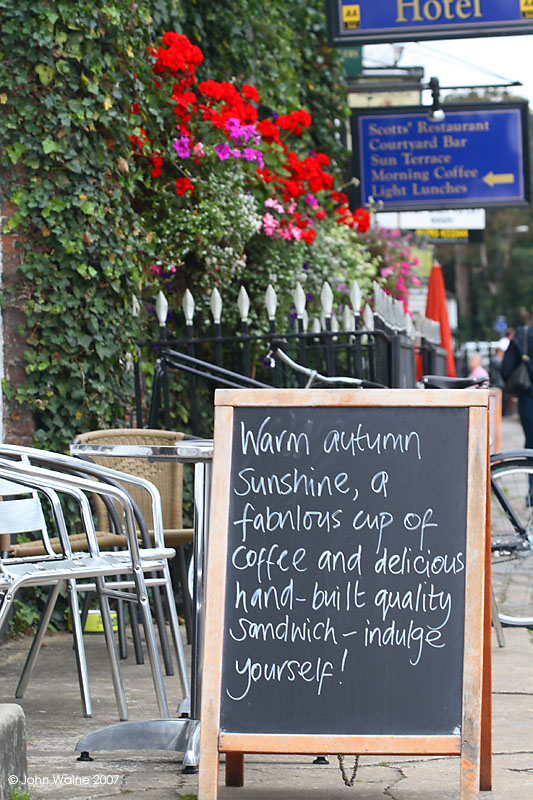 AA
Hotel
AA
Scotts' Restaurant
Courtyard Bar
Sun Terrace
Morning Coffee
Light Lunches
Warm autumn
sunshine, a
fabulous cup of
coffee and delicious
hand-built quality
sandwich - indulge
yourself!
© John Walne 2007